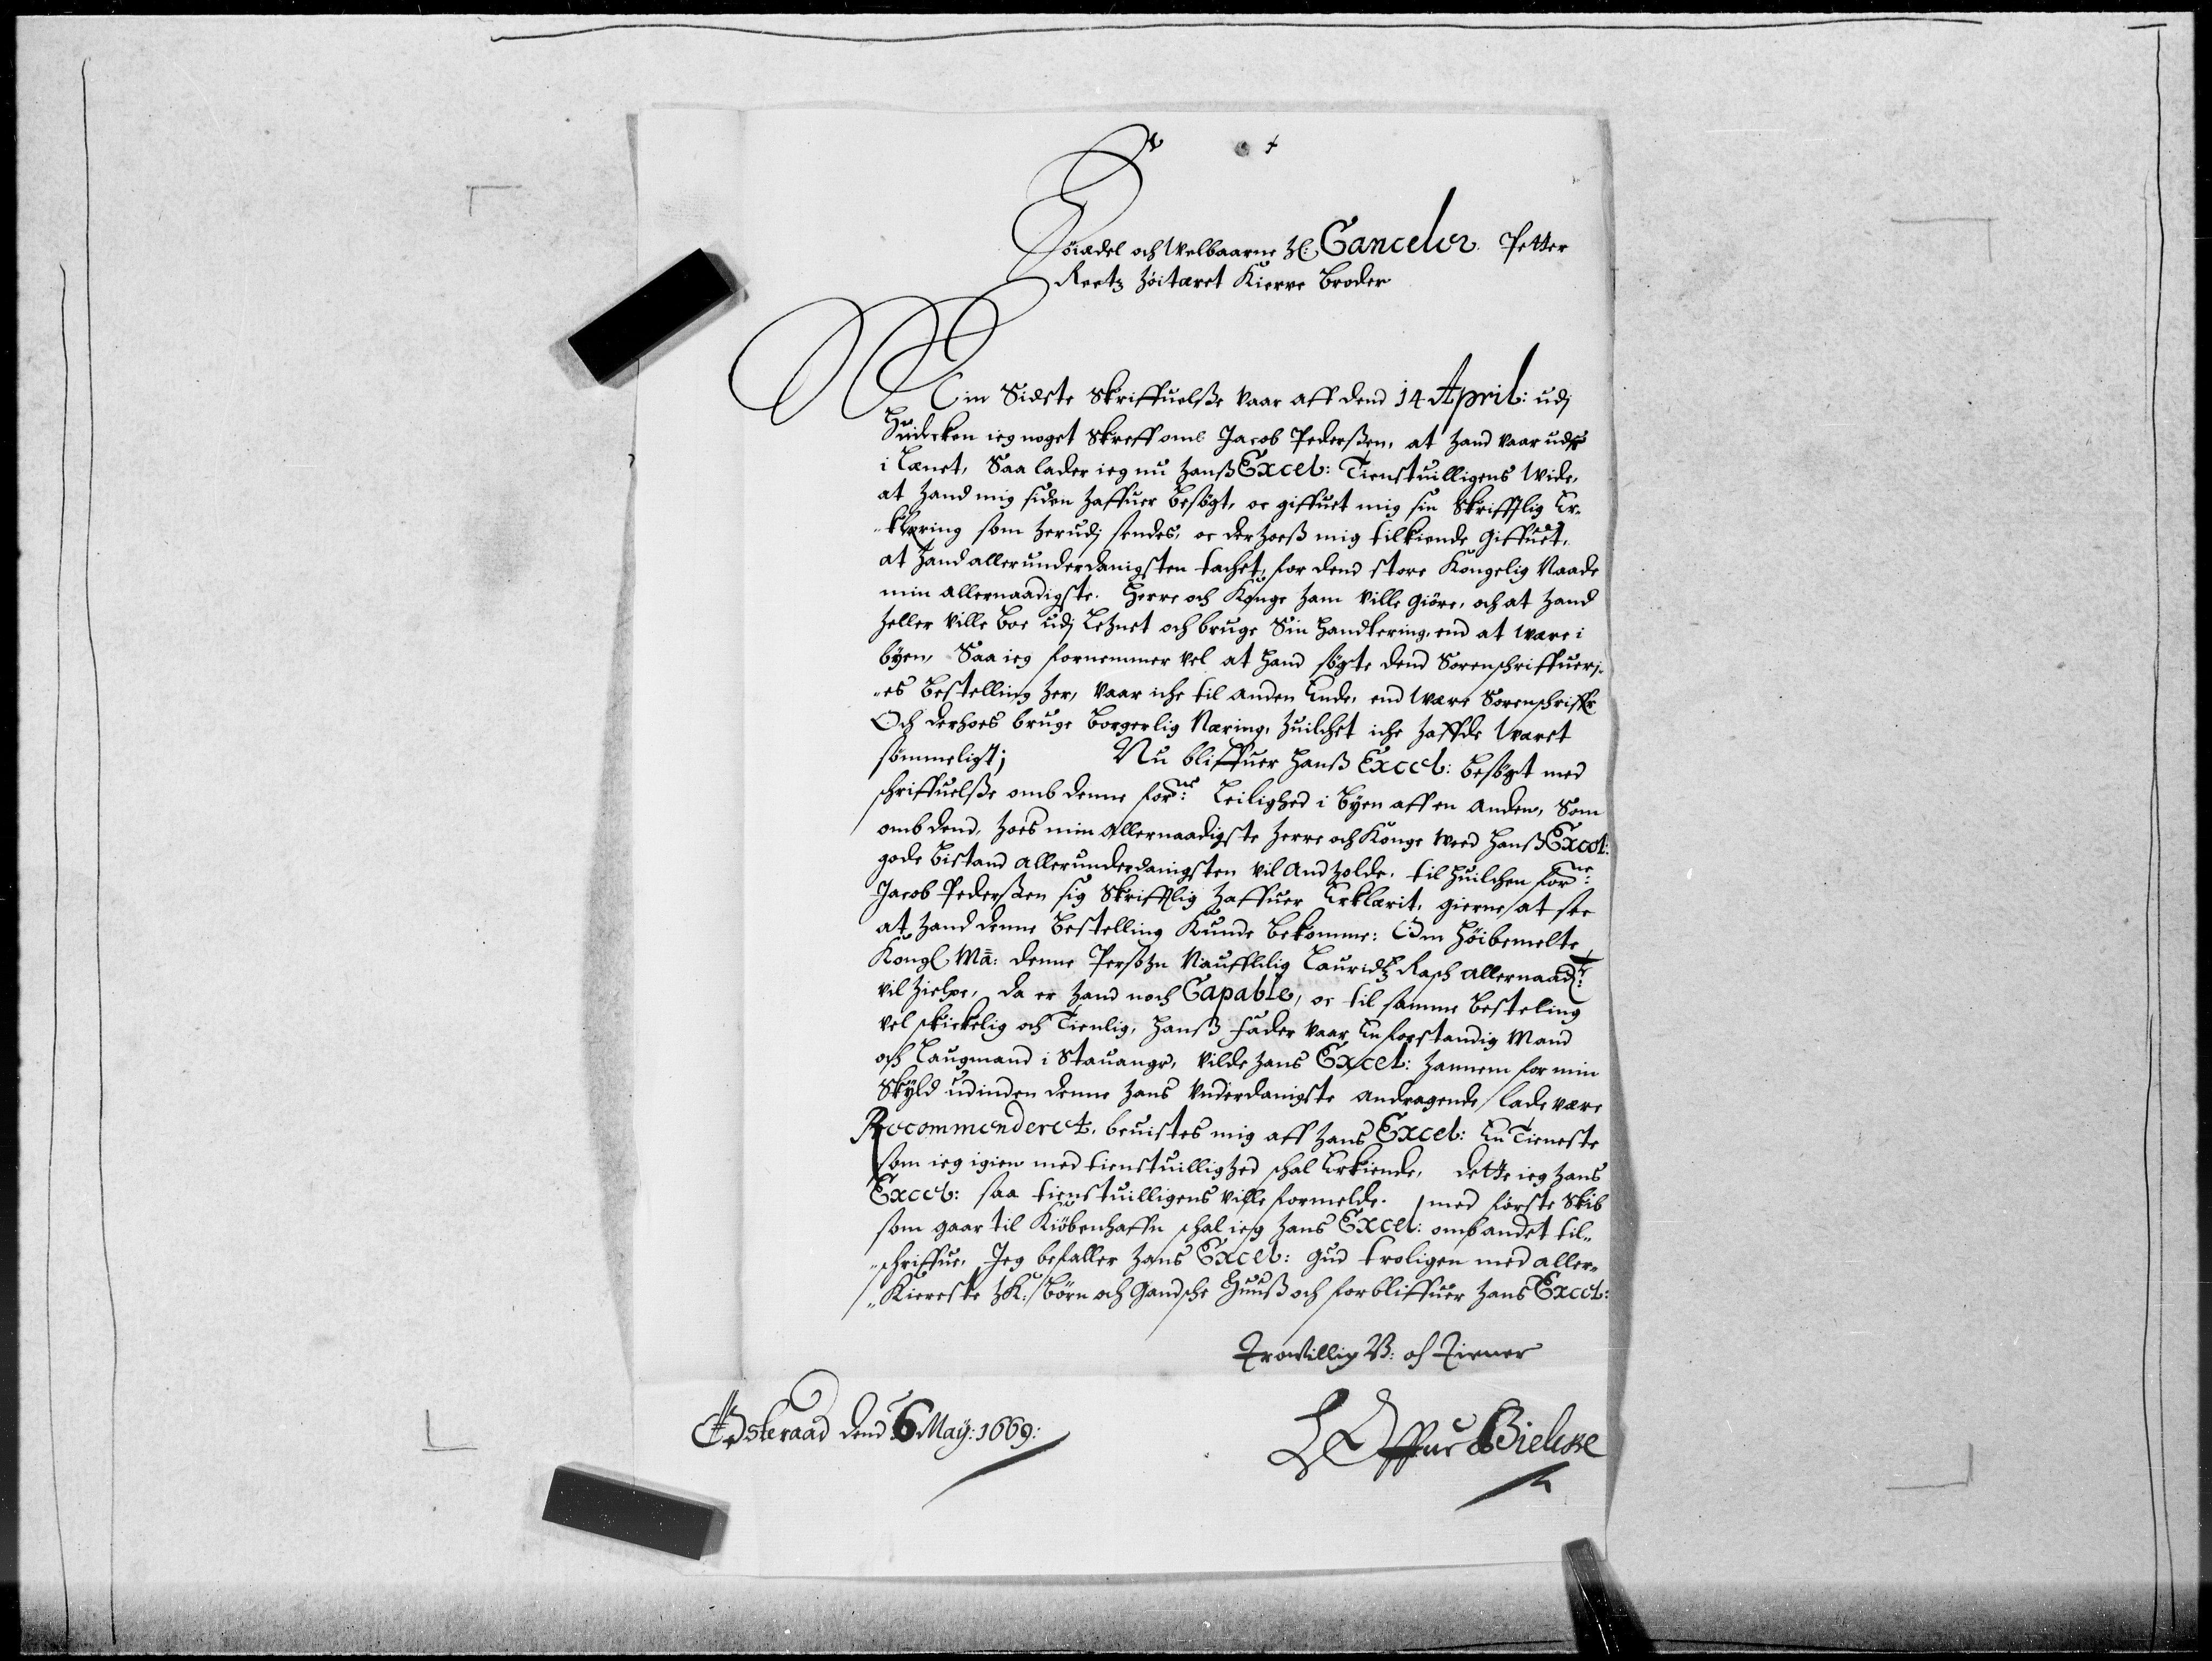 Höiædel och Welbaarne H: Canceler Petter
Reetz Höitæret Kierre Broder
Min Sidste Skriffuelsse vaar aff dend 14 April: udj
Huilcken ieg noget Skreff omb Jacob Pederssen, at hand vaar udj
i Lænet, Saa lader ieg nu Hanss Excel: Tienstuilligens Wide,
at hand mig siden haffuer besögt, oc giffuet mig sin Skrifftlig Er„
„klæring som herudj sendes, oc der hoess mig tilkiende Giffuet,
at hand allerunderdanigsten tachet, for dend store Kongelig Naade
min allernaadigste Herre och Konge ham ville giöre, och at hand
heller ville Boe udj Lehnet och bruge Sin Handtering, end at være i
býen, Saa ieg fornemmer vel at Hand sögte dend Sorenschriffueri„
„es Bestelling her, vaar iche til anden Ende, end Være Sorenschriffr
Och derhoes bruge Borgerlig Næring, huilchet iche haffde Været
sömmeligt; Nu bliffuer Hanss Excel: besögt med
schriffuelsse omb denne forne: Leilighed i Býen aff en anden, Som
omb dend, hoes min allernaadigste Herre och Konge Wed Hanss Excel:
gode Bistand allerunderdanigsten vil Andholde, til Huilchen forne:
Jacob Pederssen sig Skrifftlig haffuer Erklærit, gierne at see
at hand denne Bestelling Kunde Bekomme: Om Höibemelte
Kongl Ma: denne Persohn Naufflilig Lauridtz Rasch allernaadt:
vil hielpe, da er hand noch Capable, oc til samme Besteling
vel skickelig och Tienlig, Hanss fader vaar En forstandig Mand
och Laugmand i Stauanger, vilde Hans Excel: hannem for min
Skýld udinden denne hans Vnderdanigste andragende lade være
Recommenderet, beuistes mig aff Hans Excel: En Tieneste
som ieg igien med tienstuillighed schal Erkiende, dette ieg Hans
Excel: saa tienstuilligens ville formelde. med förste Skib
som gaar til Kiöbenhaffn schal ieg Hans Excel: omb andet til„
„schriffue, Jeg befaller Hans Excel: Gud troligen med aller„
„Kiereste HK: Börn och Gandsche Huuss och forbliffuer Hans Excel:
Trowillig B: och Tiener
Østeraad dend 6 Maÿ: 1669:
Offue Bielcke